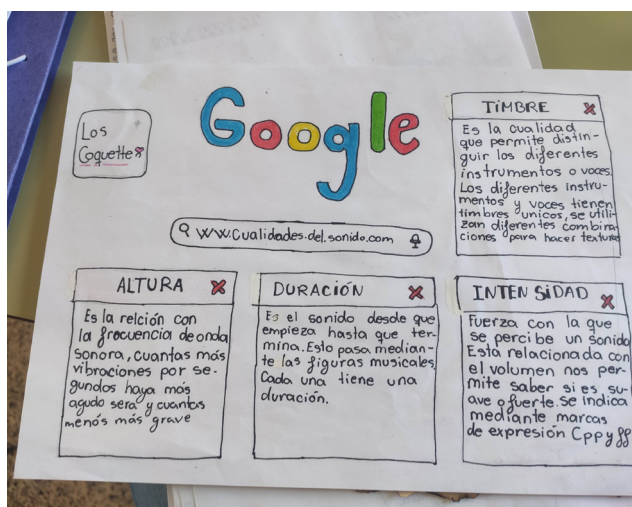 Los
Coquettes
Google
www.Cualidades.del.sonido.com
TiMBRE X
Es la cualidad
que permite distin-
guir los diferentes
instrumentos o voces.
Los diferentes instru-
mentos y voces tienen
timbres unicos, se utili-
zan diferentes combina-
ciones para hacer texturas
ALTURA X
Es la relción con
la frecuencia de onda
sonora, cuantas más
vibraciones por se-
gundos haya más
agudo será y cuantas
menós más grave
DURACIÓN X
Es el sonido desde que
empieza hasta que ter-
mina. Esto pasa median-
te las figuras musicales.
Cada una tiene una
duración.
INTENSiDAD X
Fuerza con la que
se percibe un sonido
Está relacionada con
el volumen nos per-
mite saber si es su-
ave o fuerte. Se indica
mediante marcas
de expresión Cpp y ff